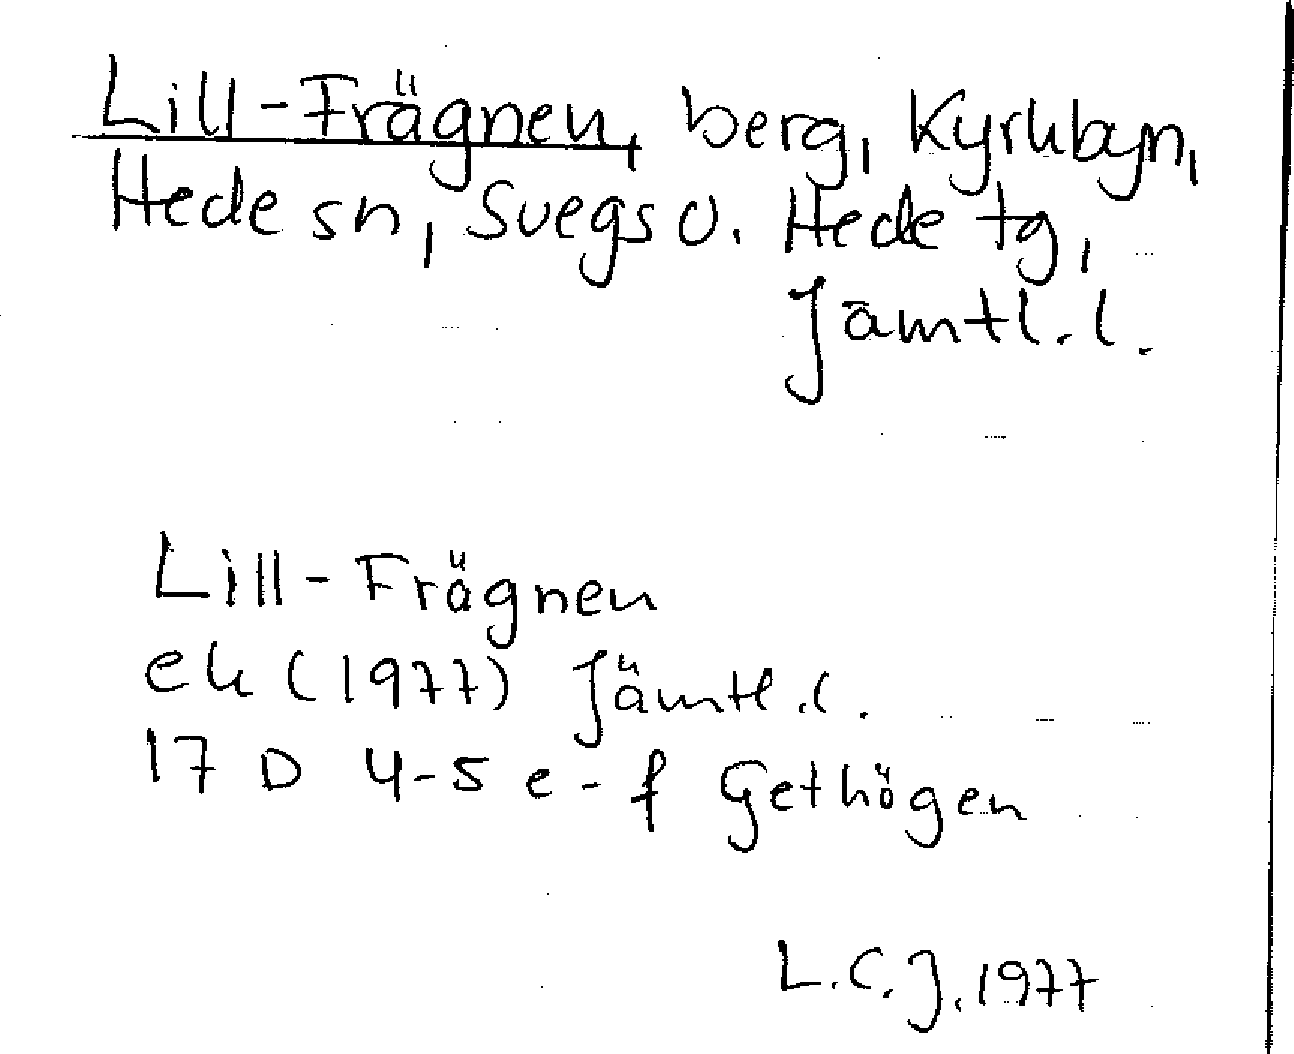 Lill-Frägnen, berg, Kyrkbyn,
Hede sn, Svegs o. Hede tg,
Jämtl. l.
Lill-Frägnen
ek (1977) Jämtl. l.
17 D 4-5 e-f Gethögen
L.C.J. 1977